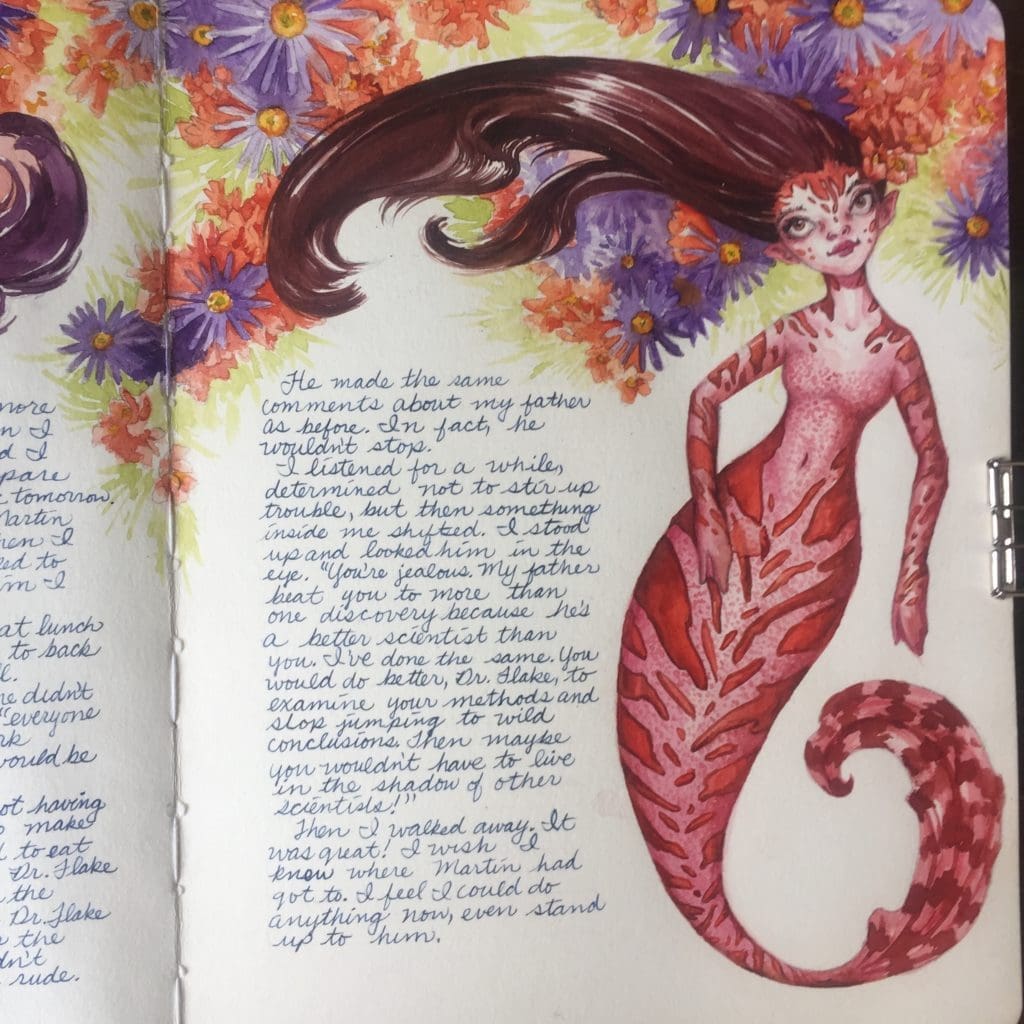 more
n I
d I
pare
tomorrow.
Martin
hen I
ed to
im I
at lunch
to back
l.
he didn't
"everyone
rk
would be
ot having
make
d to eat
Dr. Flake
the
Dr. Flake
the
dn't
rude.
He made the same
comments about my father
as before. In fact, he
wouldn't stop.
I listened for a while,
determined not to stir up
trouble, but then something
inside me shifted. I stood
up and looked him in the
eye. "You're jealous. My father
beat you to more than
one discovery because he's
a better scientist than
you. I've done the same. You
would do better, Dr. Flake, to
examine your methods and
stop jumping to wild
conclusions. Then maybe
you wouldn't have to live
in the shadow of other
scientists!"
Then I walked away. It
was great! I wish I
knew where Martin had
got to. I feel I could do
anything now, even stand
up to him.